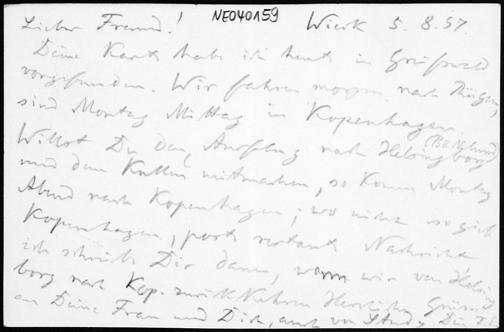 Lieber Freund! NE040159 Wieck 5.8.57.
Deine Karte habe ich heute in Greifswald
vorgefunden. Wir fahren morgen nach Rügen,
sind Montag Mittag in Kopenhagen.
Willst Du den Ausflug nach Helsingborg
und dem Kullen mitmachen, so komme Montag
Abend nach Kopenhagen; wo nicht so gib
Kopenhagen, poste restante Nachricht
ich schreibe Dir dann, wann wir von Helsing-
borg nach Kop. zurückkehren Herzlichen Gruss
an Deine Frau und Dich, auch von